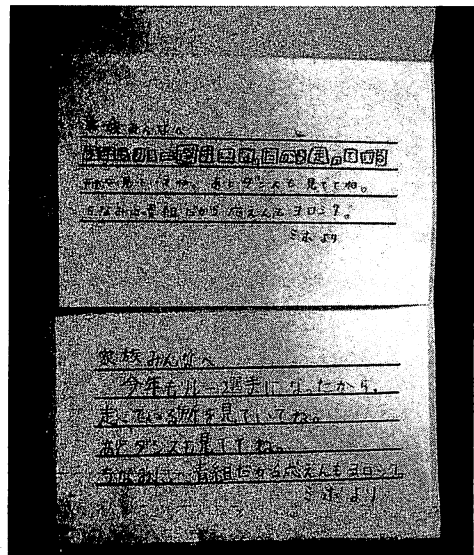 家族みんなへ
見ててね。あとダンスも見ててね。
ちなみに青組だから応えんもヨロシク。
ミホより
家族みんなへ
今年もリレー選手になったから、
走っている所を見ていてね。
あとダンスも見ててね。
ちなみに青組だから応えんもヨロシク
ミホより